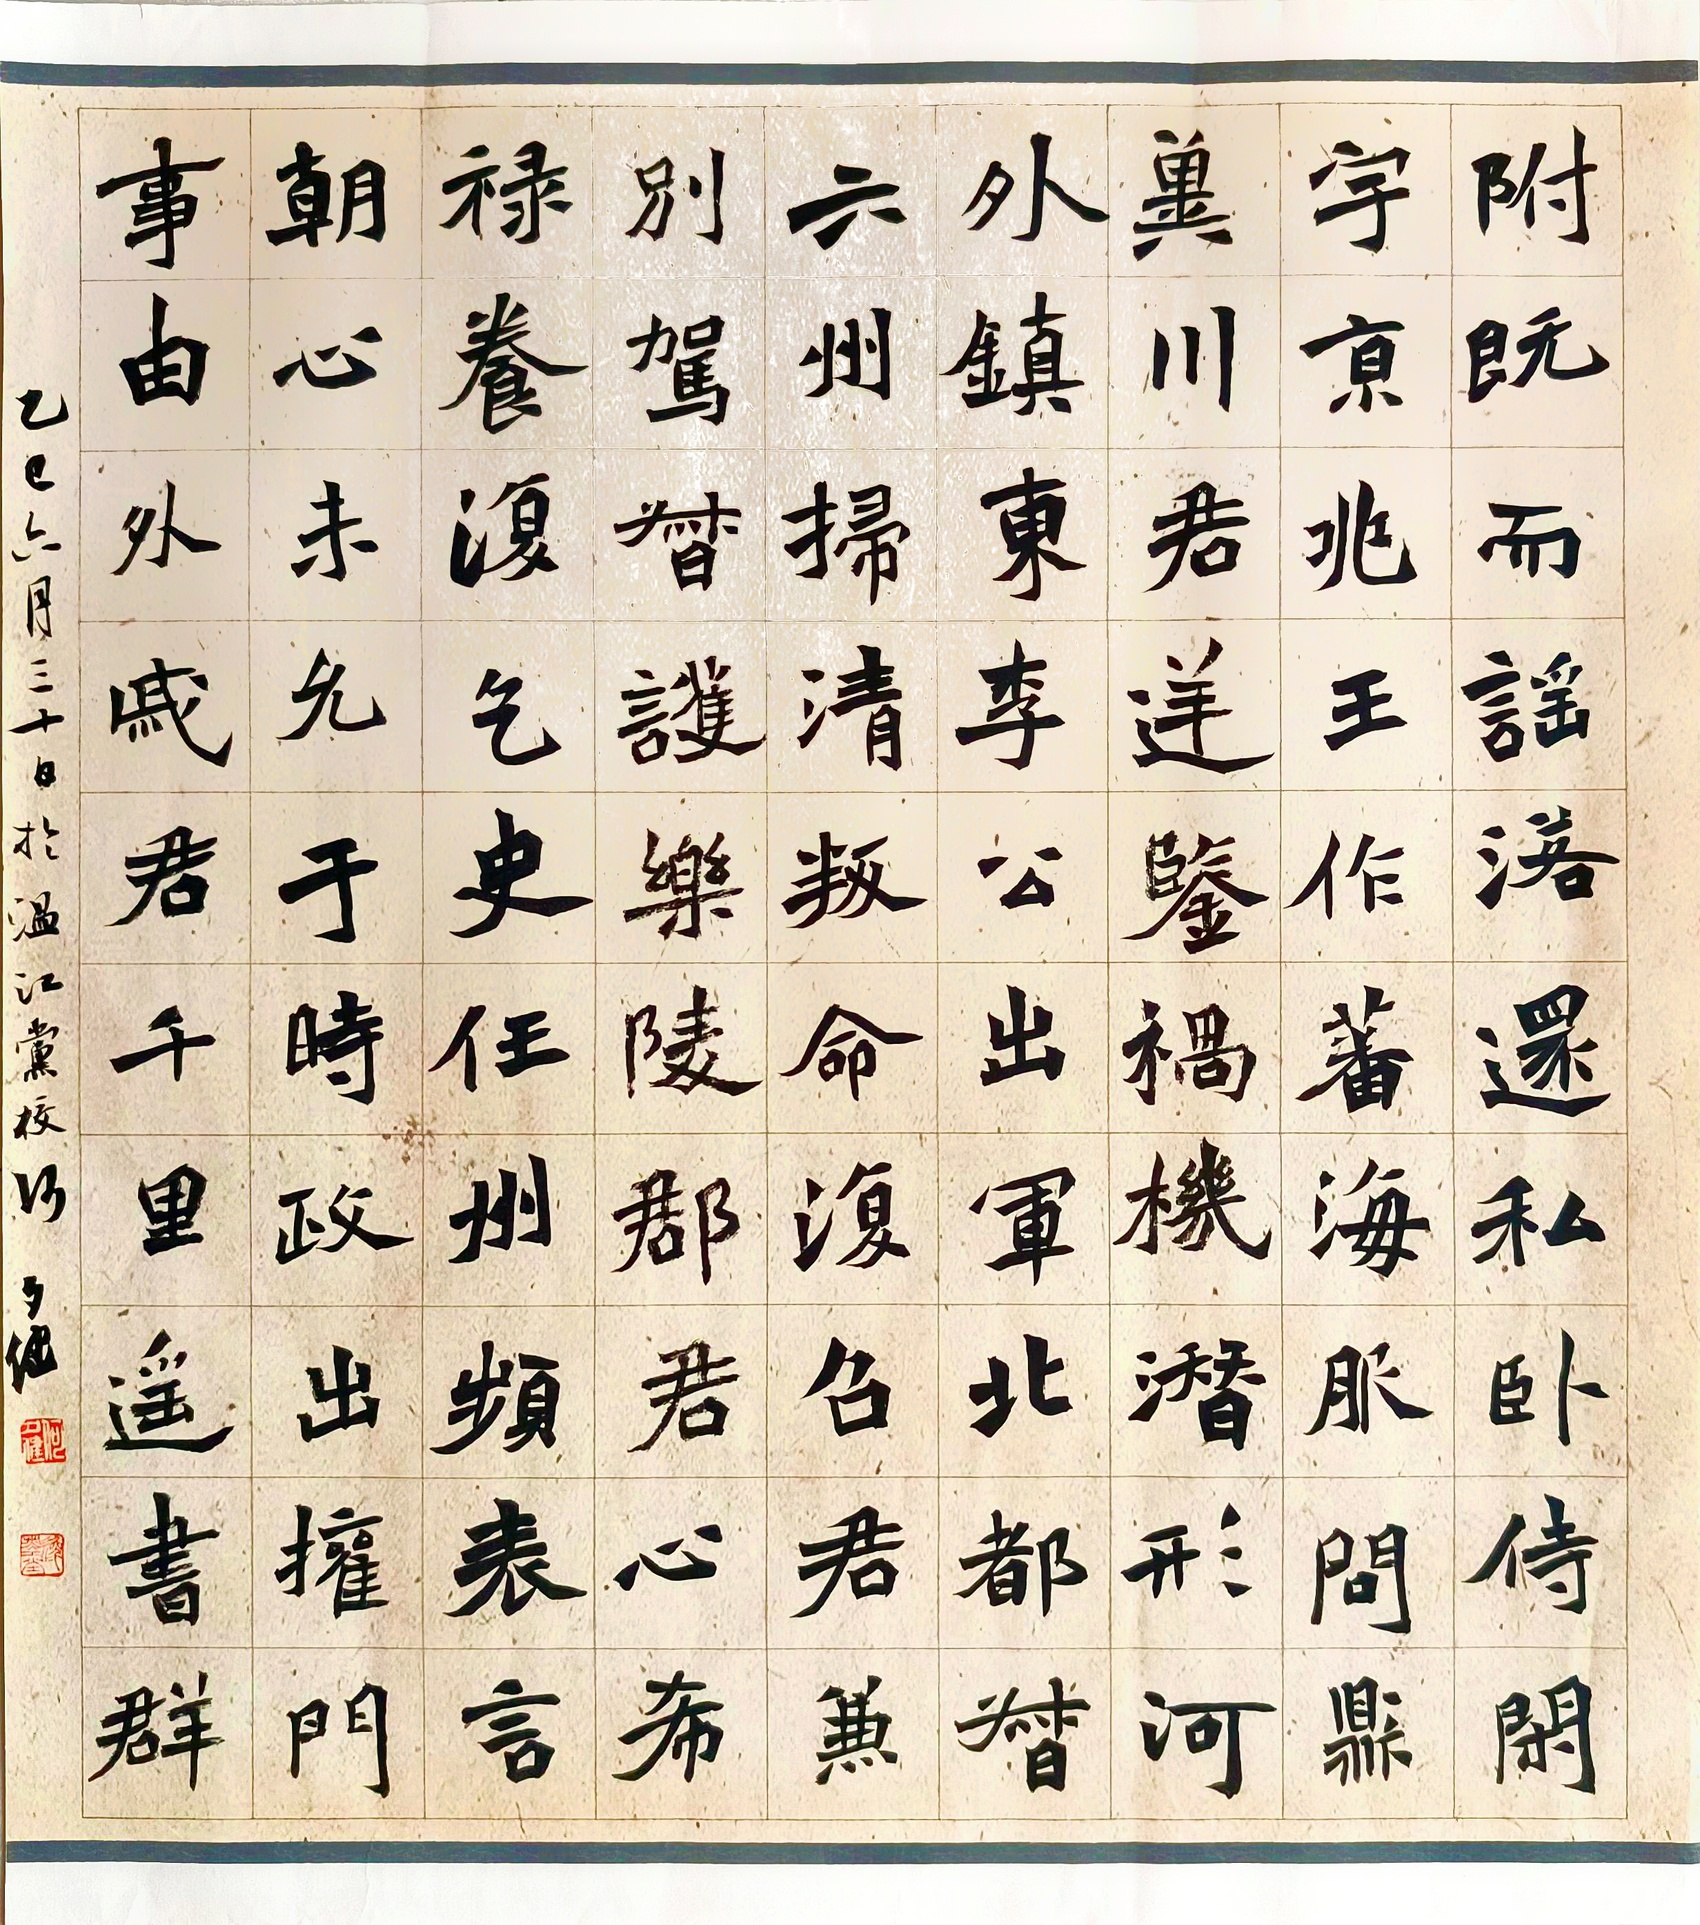 附既而謡落還私卧侍閑
字京兆王作蕃海服問鼎
冀川君逆鑒禍機潛形河
外鎮東李公出軍北都督
六州掃清叛命復召君兼
別駕督護樂陵郡君心希
禄養復乞史任州頻表言
朝心未允于時政出擢門
事由外戚君千里遥書群
乙巳六月三十日於温江黨校何